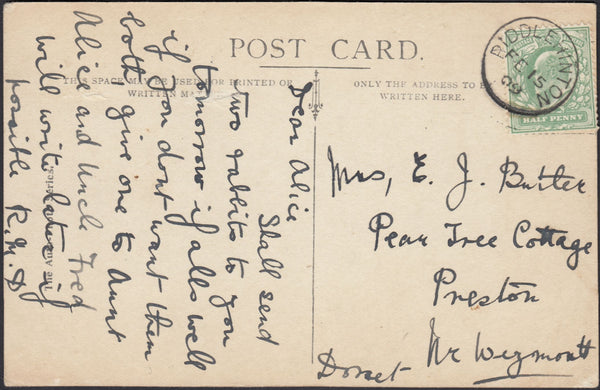 POST CARD.
THIS SPACE MAY BE USED FOR PRINTED OR
WRITTEN
ONLY THE ADDRESS TO BE
WRITTEN HERE.
Dear Alice
Shall send
two rabbits to you
tomorrow if alls well
if you dont want them
both give one to Aunt
Alice and Uncle Fred
will write later if
possible R.M.D
Mrs, E. J. Butler
Pear Tree Cottage
Preston
Nr Weymouth
Dorset
HALF PENNY
FE 15
09